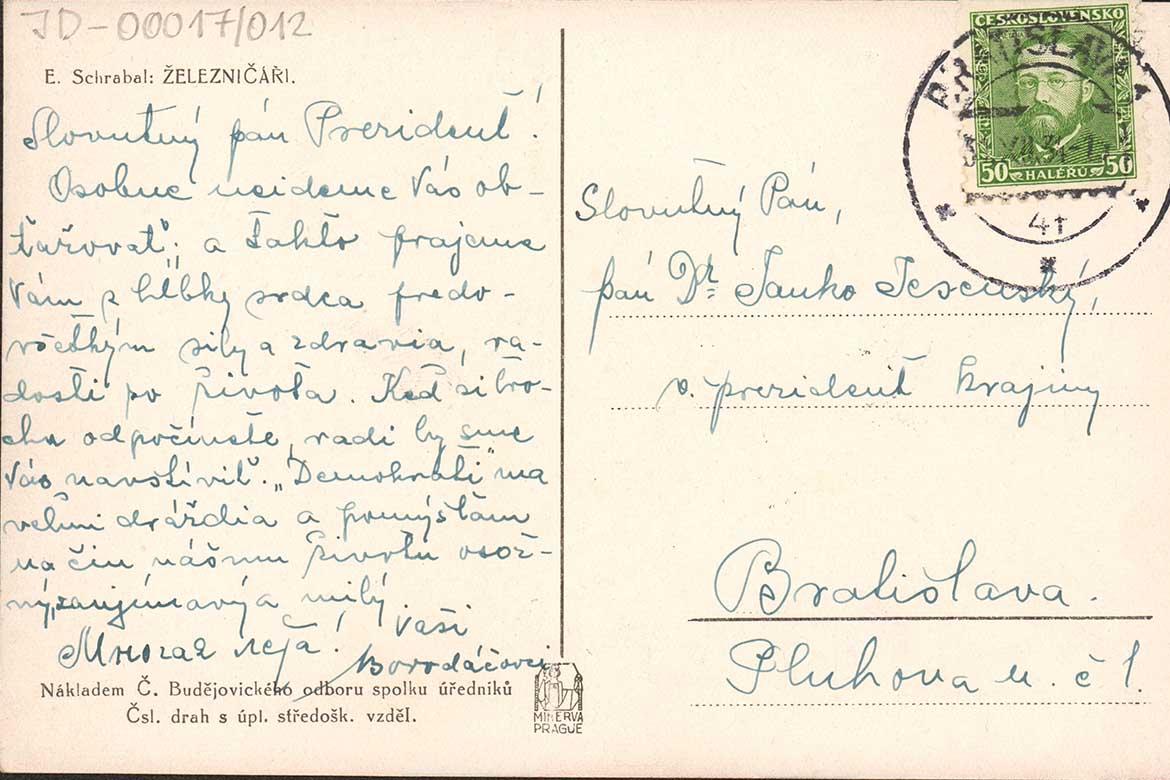 JD-00017/012
E. Schrabal: ŽELEZNIČÁŘI.
Slovutný pán Prezident!
Osobne nejdeme Vás ob-
ťažovať; a takto prajeme
Vám z hĺbky srdca predo-
všetkým sily a zdravia, ra-
dosti po života. Keď si tro-
chu odpočiniete, radi by sme
Vás navštívili. „Demokrati" ma
veľmi dráždia a pomýšľam
na čin nášmu životu osož-
ný, zaujímavý a milý.
Vaši
Многая лета!
Borodáčovci
Nákladem Č. Budějovického odboru spolku úředníků
Čsl. drah s úpl. středošk. vzděl.
MINERVA
PRAGUE
ČESKOSLOVENSKO
50 HALÉRŮ 50
BRATISLAVA 1
4f
Slovutný Pán,
pán Dr Janko Jesenský,
v. prezident krajiny
Bratislava.
Pluhova u. č 1.